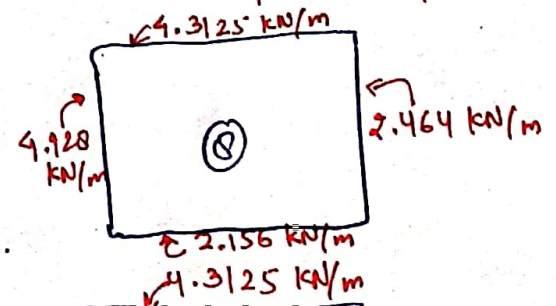 4.3125 KN/m
4.928
KN/m
8
2.464 KN/m
2.156 KN/m
4.3125 KN/m